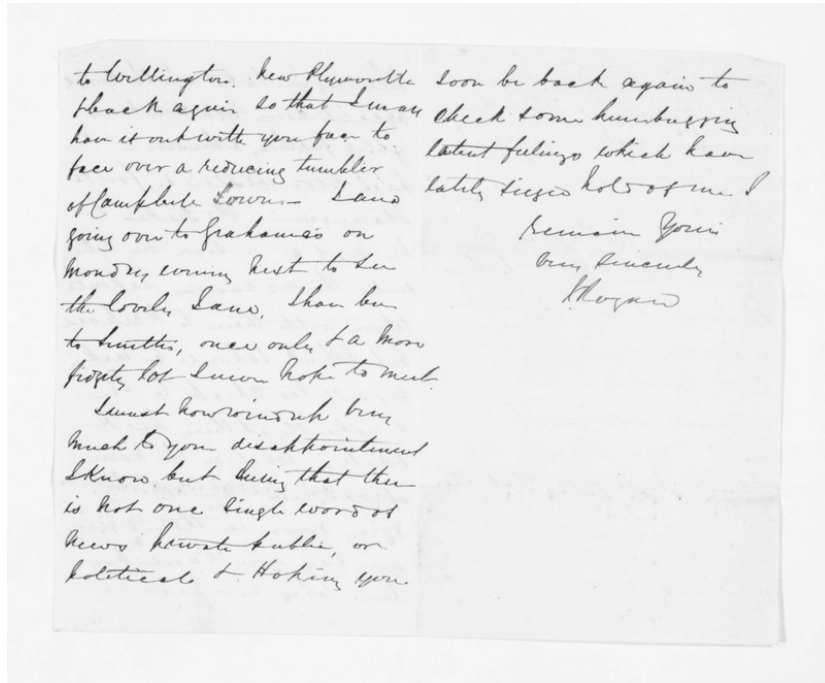 to Wellington, New Plymouth
& back again so that I may
have it out with you face to
face over a reducing tumbler
of Campbell Towns – I am
going over to Grahames on
Monday evening next to see
the lovely Jane, I have been
to Smiths, once only & a more
fidgety lot I never hope to meet.
I must now wind up very
much to your disappointment
I know but seeing that there
is not one single word of
news private public, or
political & Hoping you
soon be back again to
check some humbugging
latent feelings which have
lately seized hold of me I
Remain Yours
very sincerely
J Rogan